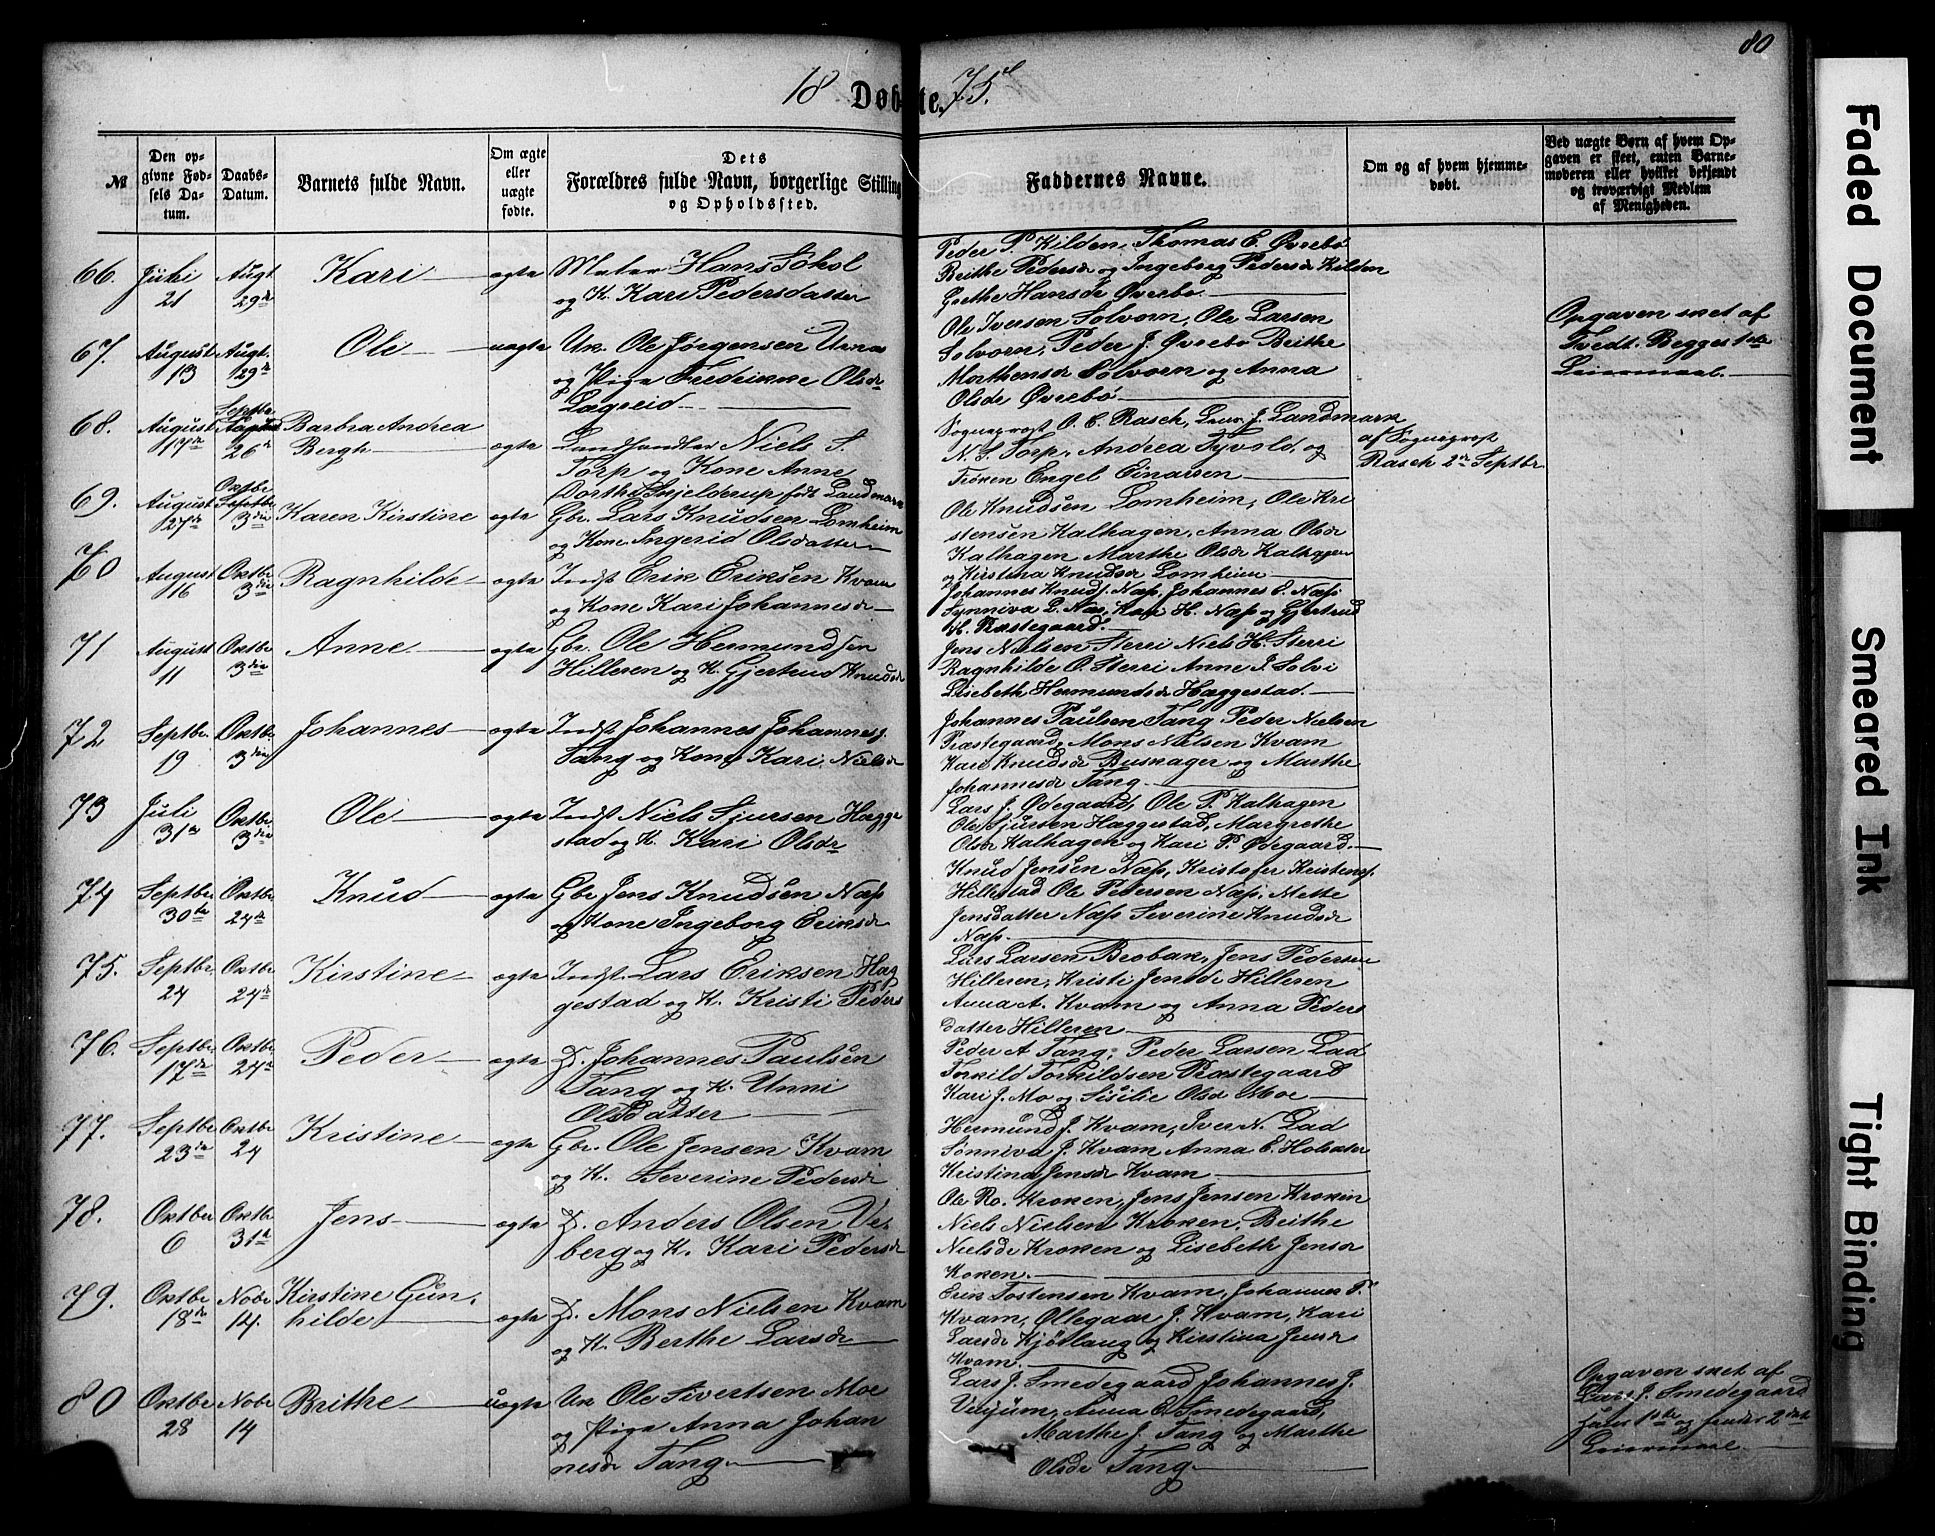 80
18 Døbte. 75.
№
Den opgivne Fødsels Datum.
Daabs-Datum.
Barnets fulde Navn.
Om ægte eller uægte fødte.
Dets Forældres fulde Navn, borgerlige Stilling og Opholdssted.
Faddernes Navne.
Om og af hvem hjemmedøbt.
Ved uægte Børn af hvem Opgaven er skeet, enten Barnemoderen eller hvilket bekjendt og troværdigt Medlem af Menigheden.
66. Juli 21 Augt 29de Kari ægte Maler Hans Søhol
og K. Kari Pedersdatter
Peder P. Kilden, Thomas E. Øvrebø
Brithe Pedersdr og Ingeborg Pedersdr Kilden
Grethe Hansdr Øvrebø
67. August 13 Augt. 29de Ole uægte Uk. Ole Jørgensen Urnes
og Pige Fredrikke Olsdr
Lægreid
Ole Iversen Solvorn, Ole Larsen
Solvorn, Peder J. Øvrebø Brithe
Morthensdr Solvorn og Anna
Olsdr Øvrebø
Opgaven sket af
Tvedt. Begges 1ste
Leiermaal.
68. August 17de Septbr. 26de Barbra Andrea
Bergh ægte Landhandler Niels S.
Torp og Kone Anne
Dorthe Snjelderup fdt Landmark
Sogneprost O. E. Rasch, J. Landmark
N. S. Torp, Andrea Tyvold, og
Frøken Engel Einarsen
af Sogneprost
Rasch 2den Septbr.
69. August 27de Oktbr. 3die Karen Kirstine ægte Gbr. Lars Knudsen Lomheim
og Kone Ingerid Olsdatter
Ole Knudsen Lomheim, Ole Kristensen
Kalhagen, Anna Olsdr
Kalhagen Marthe Olsdr Kalhagen
og Kirstina Knudsdr Lomheim
70 August 16 Oktbr. 3die Ragnhilde ægte Indst. Erik Eriksen Kvam
og Kone Kari Johannesdr
Johannes Knuds. Næss, Johannes E. Næss
Synniva L. Næs, Kari H. Næss og Gjertrud
H. Præstegaard.
71 August 11 Oktbr 3die Anne ægte Gbr. Ole Hermundsen
Hilleren og K. Gjertrud Knudsdr
Jens Nielsen Sterri Niels H. Sterri
Ragnhilde O. Sterri Anne J. Solvi
Lisebeth Hermundsdr Haggestad.
72 Septbr. 19 Oktbr. 3die Johannes ægte Indst Johannes Johanness.
Tang og Kone Kari Nielsdr
Johannes Paulsen Tang Peder Nielsen
Præstegaard, Mons Nielsen Kvam
Kari Knudsdr Buskager og Marthe
Johannesdr Tang.
73 Juli 31te Oktbr 3die Ole ægte Indst Niels Sjursen Haggestad
og K. Kari Olsdr
Lars J. Ødegaard, Ole P. Kalhagen
Ole Sjursen Hæggestad, Margrethe
Olsdr Kalhagen og Kari P. Ødegaard.
74 Septbr. 30te Oktbr. 24de Knud ægte Gbr Jens Knudsen Næss
og Kone Ingeborg Eriksdr
Knud Jensen Næss, Kristofer Kristens.
Hillestad Ole Pedersen Næss. Mette
Jensdatter Næss Severine Knudsdr
Næss.
75. Septbr. 24 Oktbr. 24de Kirstine ægte Indst. Lars Eriksen Haggestad
og K. Kristi Peders
Lars Larsen Brobak, Jens Pedersen
Hilleren, Kristi Jensdr Hilleren
Anna A. Kvam og Anna Pedersdatter
Hilleren
76. Septbr. 17de Oktbr. 24de Peder ægte D. Johannes Paulsen
Tang og K. Unni
Olsdatter
Peder A Tang, Peder Larsen Lad
Torkild Torkildsen Præstegaard
Kari J. Mo og Sisilie Olsdr Moe
77. Septbr 23die Oktbr 24 Kristine ægte Gbr. Ole Jensen Kvam
og K. Severine Pedersdr
Hermund J. Kvam, Iver N. Lad
Sønniva J. Kvam Anna E. Holsæter
Kristina Jensdr Kvam
78. Oktber 6 Oktbr 31te Jens ægte D. Anders Olsen Veberg
og K. Kari Pedersdr
Ole Ro. Kroken, Jens Jensen Kroken
Niels Nielsen Kroken, Brithe
Nielsdr Kroken og Lisebeth Jensdr
Koken.
79. Oktbr 18de Novbr 14. Kirstine Gunhilde
ægte D. Mons Nielsen Kvam
og K. Berthe Larsdr
Erik Tostensen Kvam, Johannes T.
Kvam, Ollegaar J. Kvam, Kari
Larsdr Kjøtlaug og Kirstina Jensdr
Kvam.
80 Oktbr 28 Novbr 14 Brithe uægte Uk Ole Sivertsen Moe
og Pige Anna Johannesdr
Tang
Lars J. Smedegaard Johannes J.
Veijum, Anna O. Smedegaard,
Marthe J. Tang og Marthe
Olsdr Tang
Opgaven sket af
Lars J. Smedegaard
Hans 1ste og hendes 2det
Leiermaal
Faded Document
Smeared Ink
Tight Binding